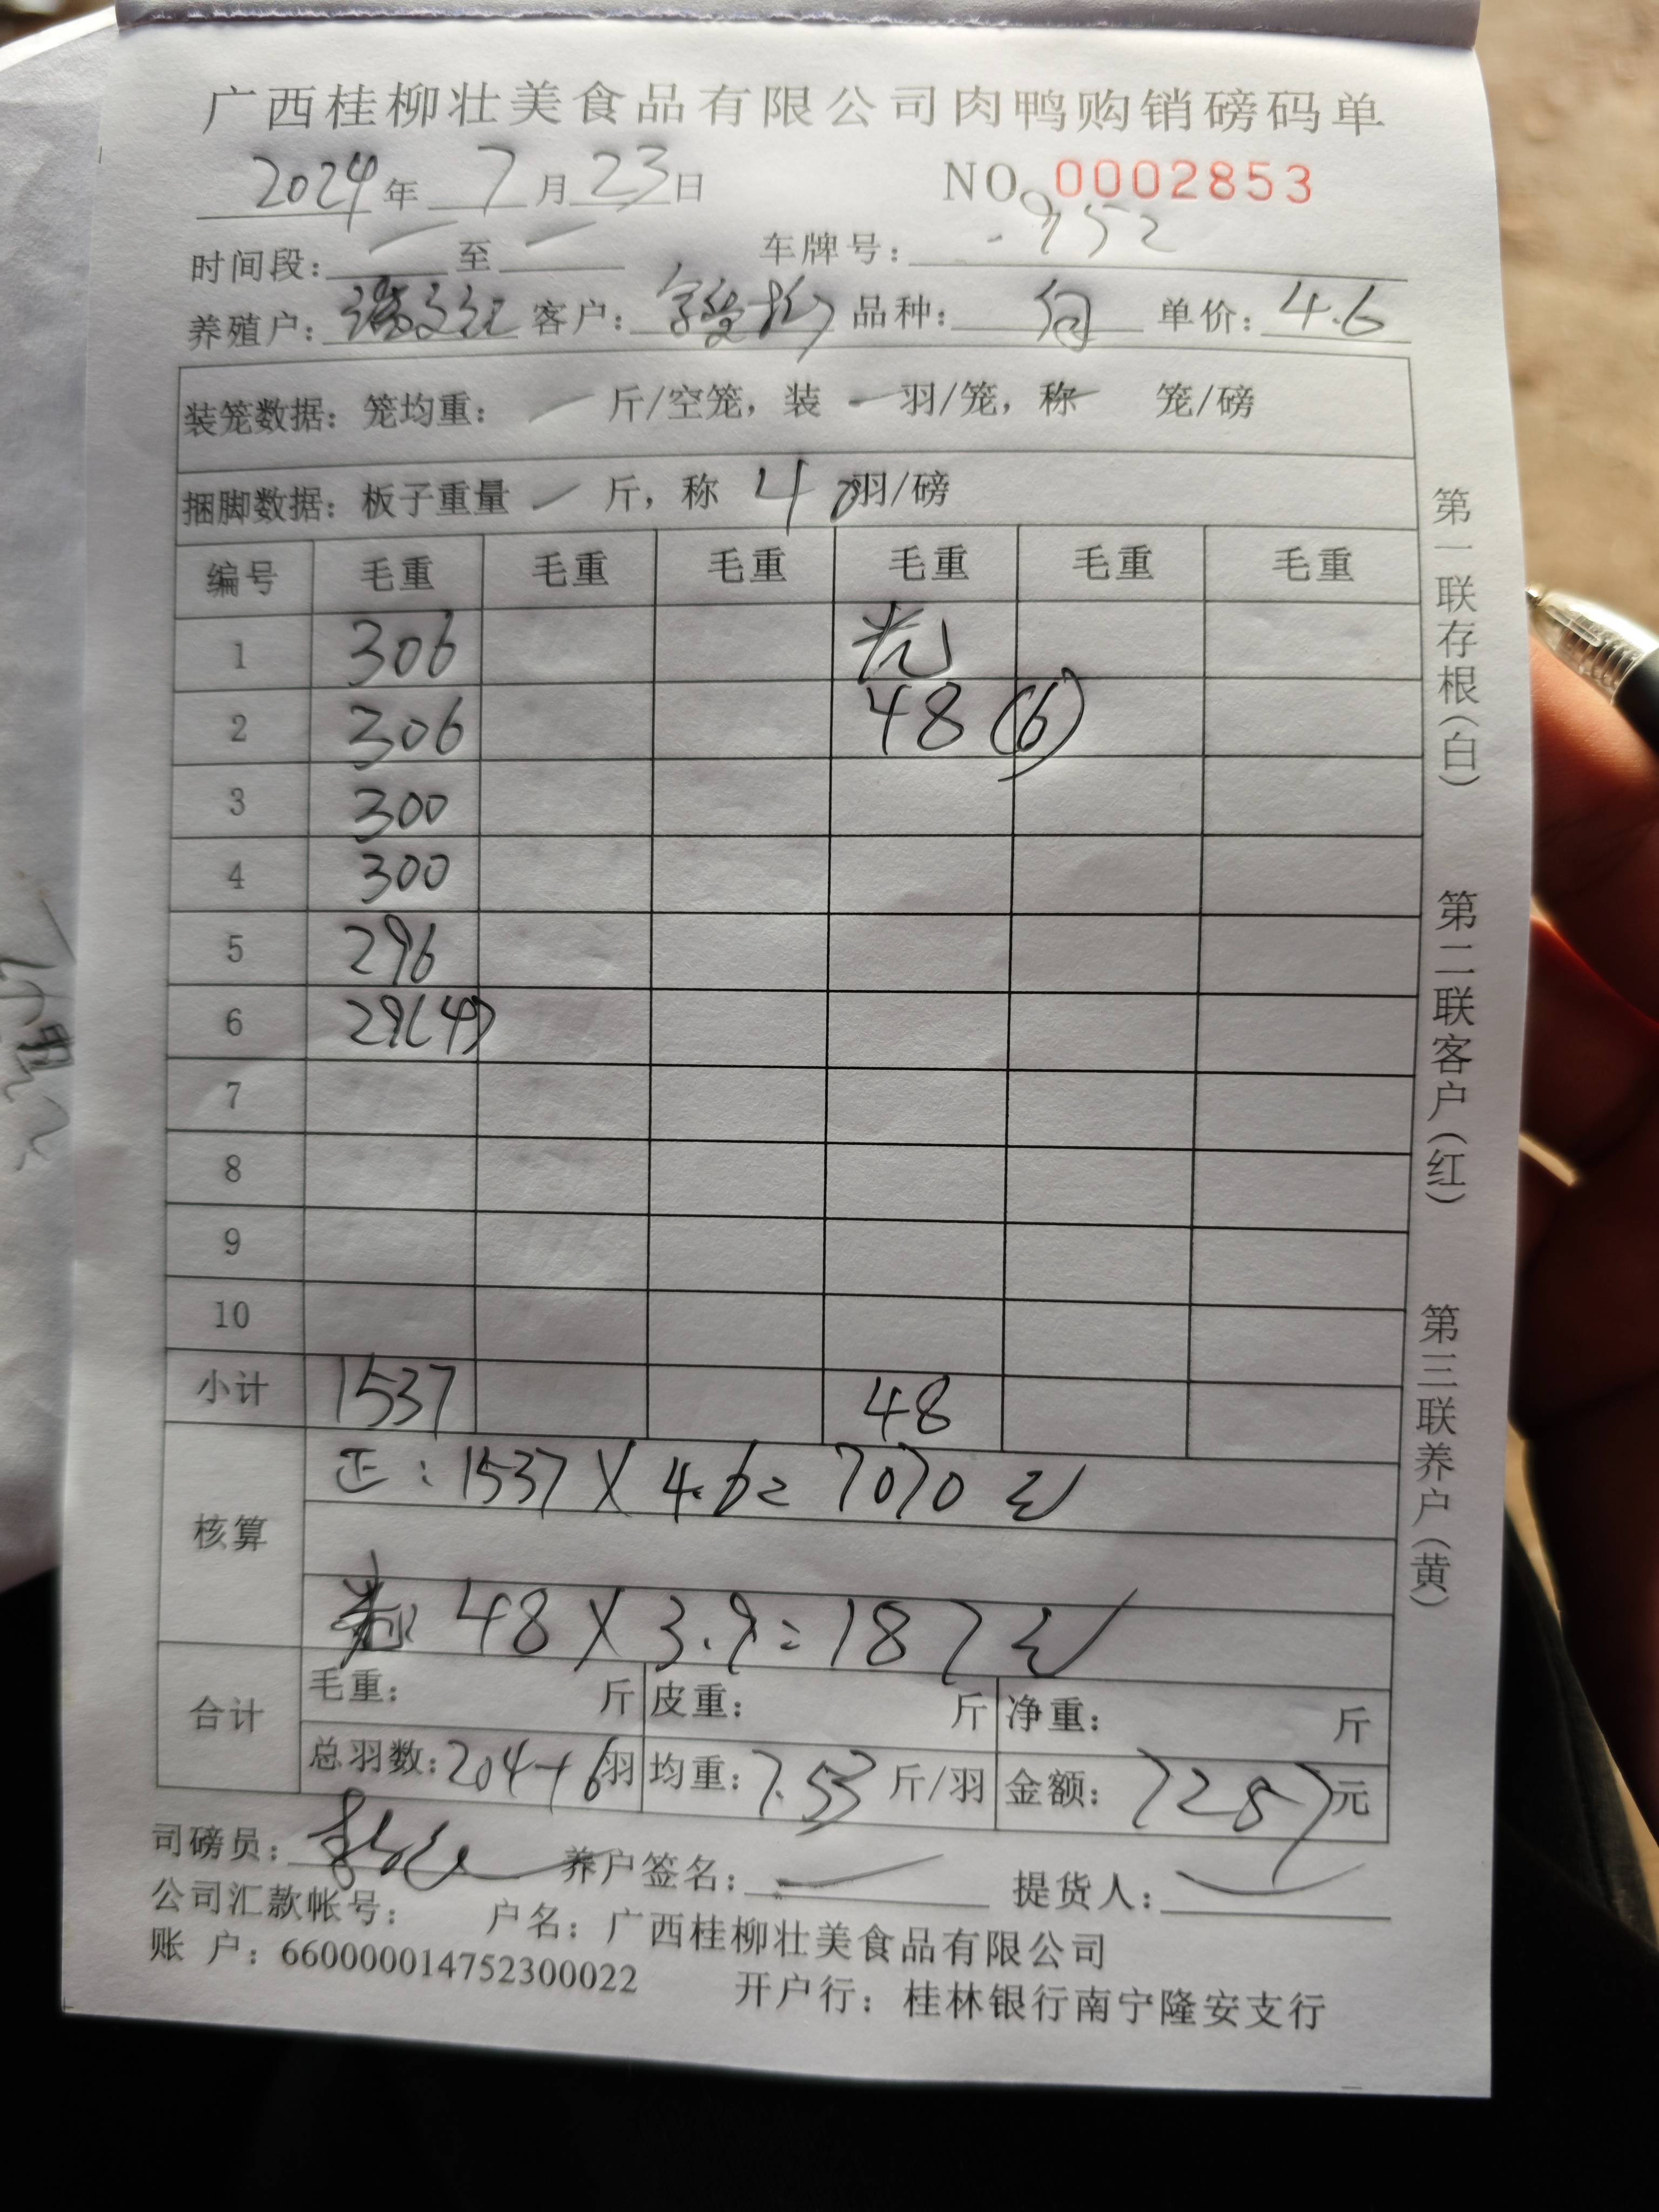 广西桂柳壮美食品有限公司肉鸭购销磅码单
2024年 7月23日 NO 0002853
时间段: 一 至 一 车牌号: 952
养殖户: 客户: 品种: 单价: 4.6
装笼数据: 笼均重: 一 斤/空笼, 装 一 羽/笼, 称 一 笼/磅
捆脚数据: 板子重量 一 斤, 称 40羽/磅
编号 毛重 毛重 毛重 毛重 毛重 毛重
1 306 光
2 306 48 (6)
3 300
4 300
5 296
6 29(4)
7
8
9
10
小计 1537 48
核算
正: 1537 X 4.6= 7070元
光: 48 X 3.9=187元
合计
毛重: 斤 皮重: 斤 净重: 斤
总羽数: 204+6羽 均重: 7.53斤/羽 金额: 7287元
司磅员: 养户签名: 一 提货人:
公司汇款帐号: 户名: 广西桂柳壮美食品有限公司
账 户: 660000014752300022 开户行: 桂林银行南宁隆安支行
第一联存根(白)
第二联客户(红)
第三联养户(黄)